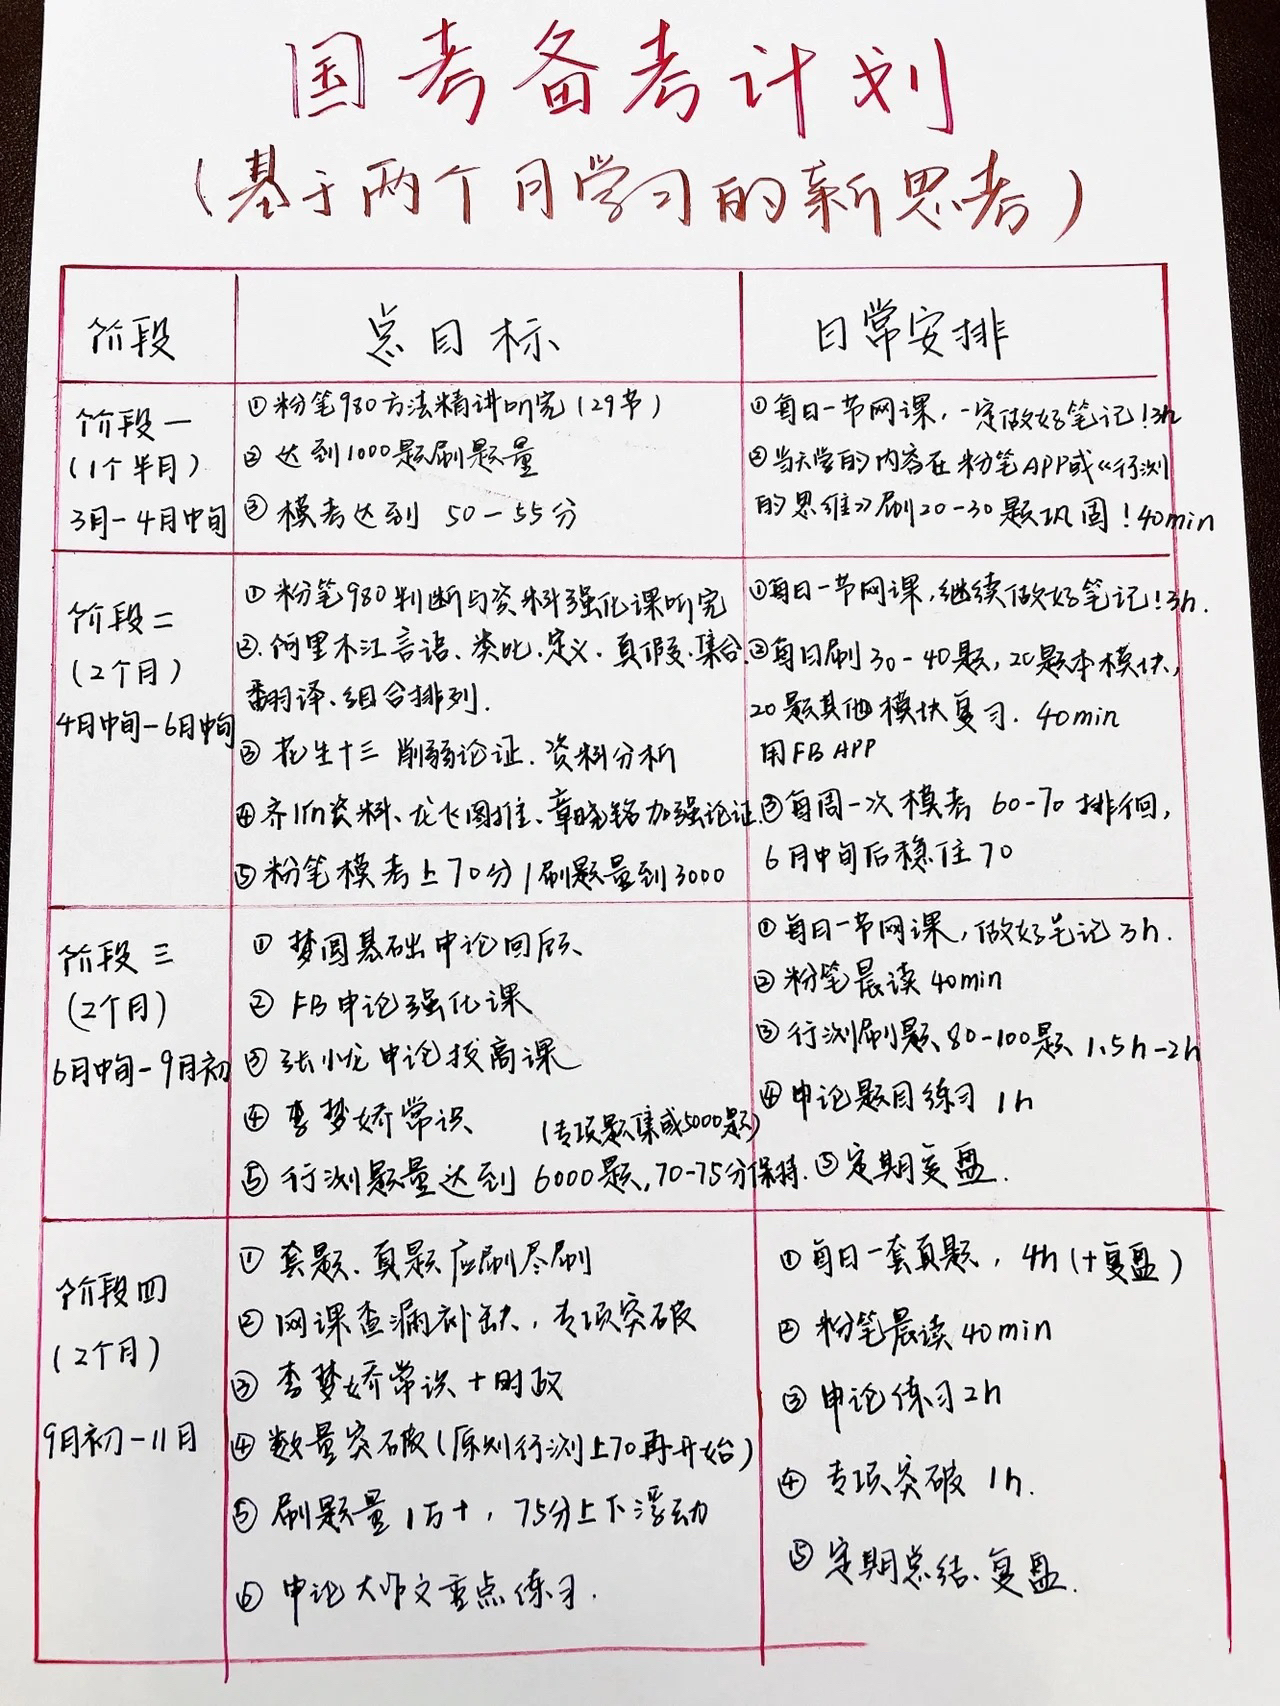 国考备考计划
(基于两个月学习的新思考)
阶段
总目标
日常安排
阶段一
(1个半月)
3月-4月中旬
①粉笔980方法精讲听完(29节)
②达到1000题刷题量
③模考达到 50-55分
①每日一节网课,一定做好笔记!3h
②当天学的内容在粉笔APP或《行测
的思维》刷20-30题巩固!40min
阶段二
(2个月)
4月中旬-6月中旬
①粉笔980判断与资料强化课听完
②.阿里木江言语、类比、定义、真假、集合、
翻译、组合排列.
③花生十三 削弱论证、资料分析
④齐麟资料、龙飞图推、章晓铭加强论证.
⑤粉笔模考上70分/刷题量到3000
①每日一节网课,继续做好笔记!3h.
②每日刷30-40题,20题本模块,
20题其他模块复习. 40min
用FB APP
③每周一次模考 60-70排徊,
6月中旬后稳住70
阶段三
(2个月)
6月中旬-9月初
①梦圆基础申论回顾
②FB申论强化课
③张小龙申论拔高课
④李梦娇常识 (专项题集或5000题)
⑤行测题量达到6000题,70-75分保持.
①每日一节网课,做好笔记 3h.
②粉笔晨读 40min
③行测刷题 80-100题 1.5h-2h
④申论题目练习 1h
⑤定期复盘.
阶段四
(2个月)
9月初-11月
①套题、真题应刷尽刷
②网课查漏补缺,专项突破
③李梦娇常识+时政
④数量突破(原则行测上70再开始)
⑤刷题量1万+,75分上下浮动
⑥申论大作文重点练习.
①每日一套真题,4h(+复盘)
②粉笔晨读40min
③申论练习2h
④专项突破 1h.
⑤定期总结、复盘.